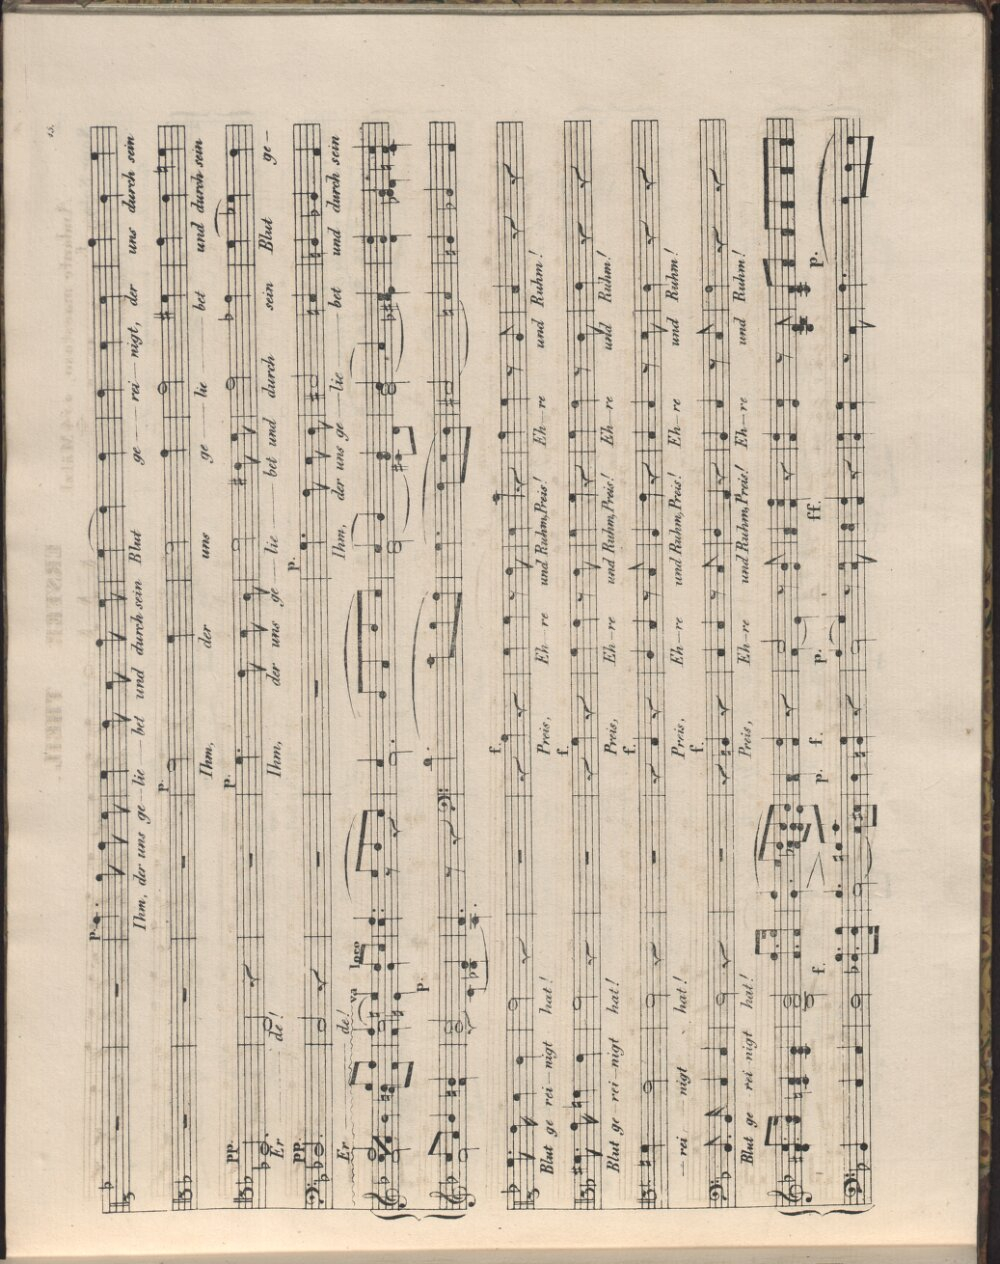 15.
p.
Ihm, der uns ge — lie — bet und durch sein Blut ge — rei — nigt, der uns durch sein
p.
Ihm, der uns ge — lie — bet und durch sein
pp. p.
Er — de! Ihm, der uns ge — lie — bet und durch sein Blut ge —
pp. p.
Er — de! Ihm, der uns ge — lie — bet und durch sein
va loco
p.
f.
Blut ge — rei — nigt hat! Preis, Eh — re und Ruhm, Preis! Eh — re und Ruhm!
f.
Blut ge — rei — nigt hat! Preis, Eh — re und Ruhm, Preis! Eh — re und Ruhm!
f.
— rei — nigt hat! Preis, Eh — re und Ruhm, Preis! Eh — re und Ruhm!
f.
Blut ge — rei — nigt hat! Preis, Eh — re und Ruhm, Preis! Eh — re und Ruhm!
f. p. f. p. ff. p.